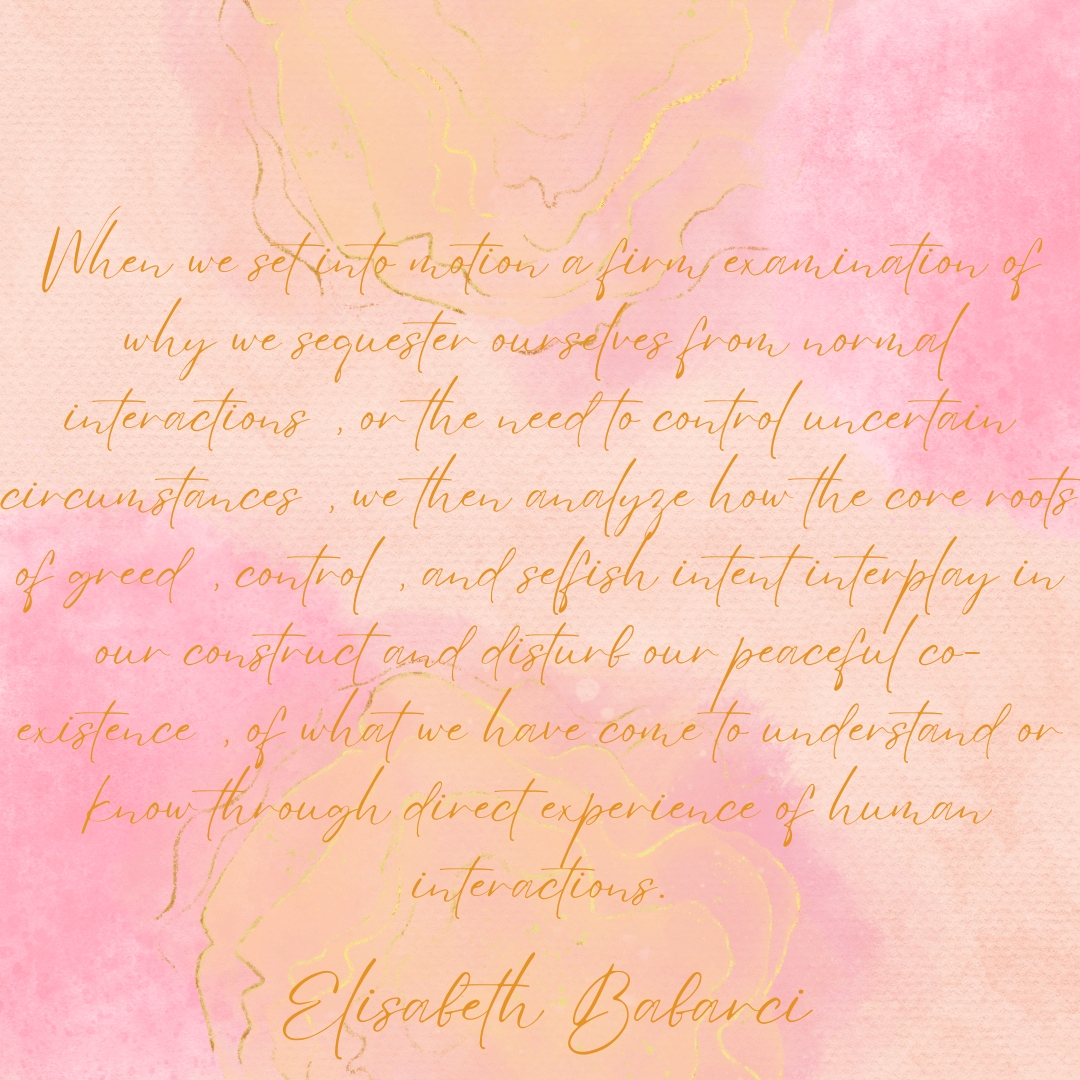 When we set into motion a firm examination of
why we sequester ourselves from normal
interactions , or the need to control uncertain
circumstances , we then analyze how the core roots
of greed , control , and selfish intent interplay in
our construct and disturb our peaceful co-
existence , of what we have come to understand or
know through direct experience of human
interactions.
Elisabeth Babarci